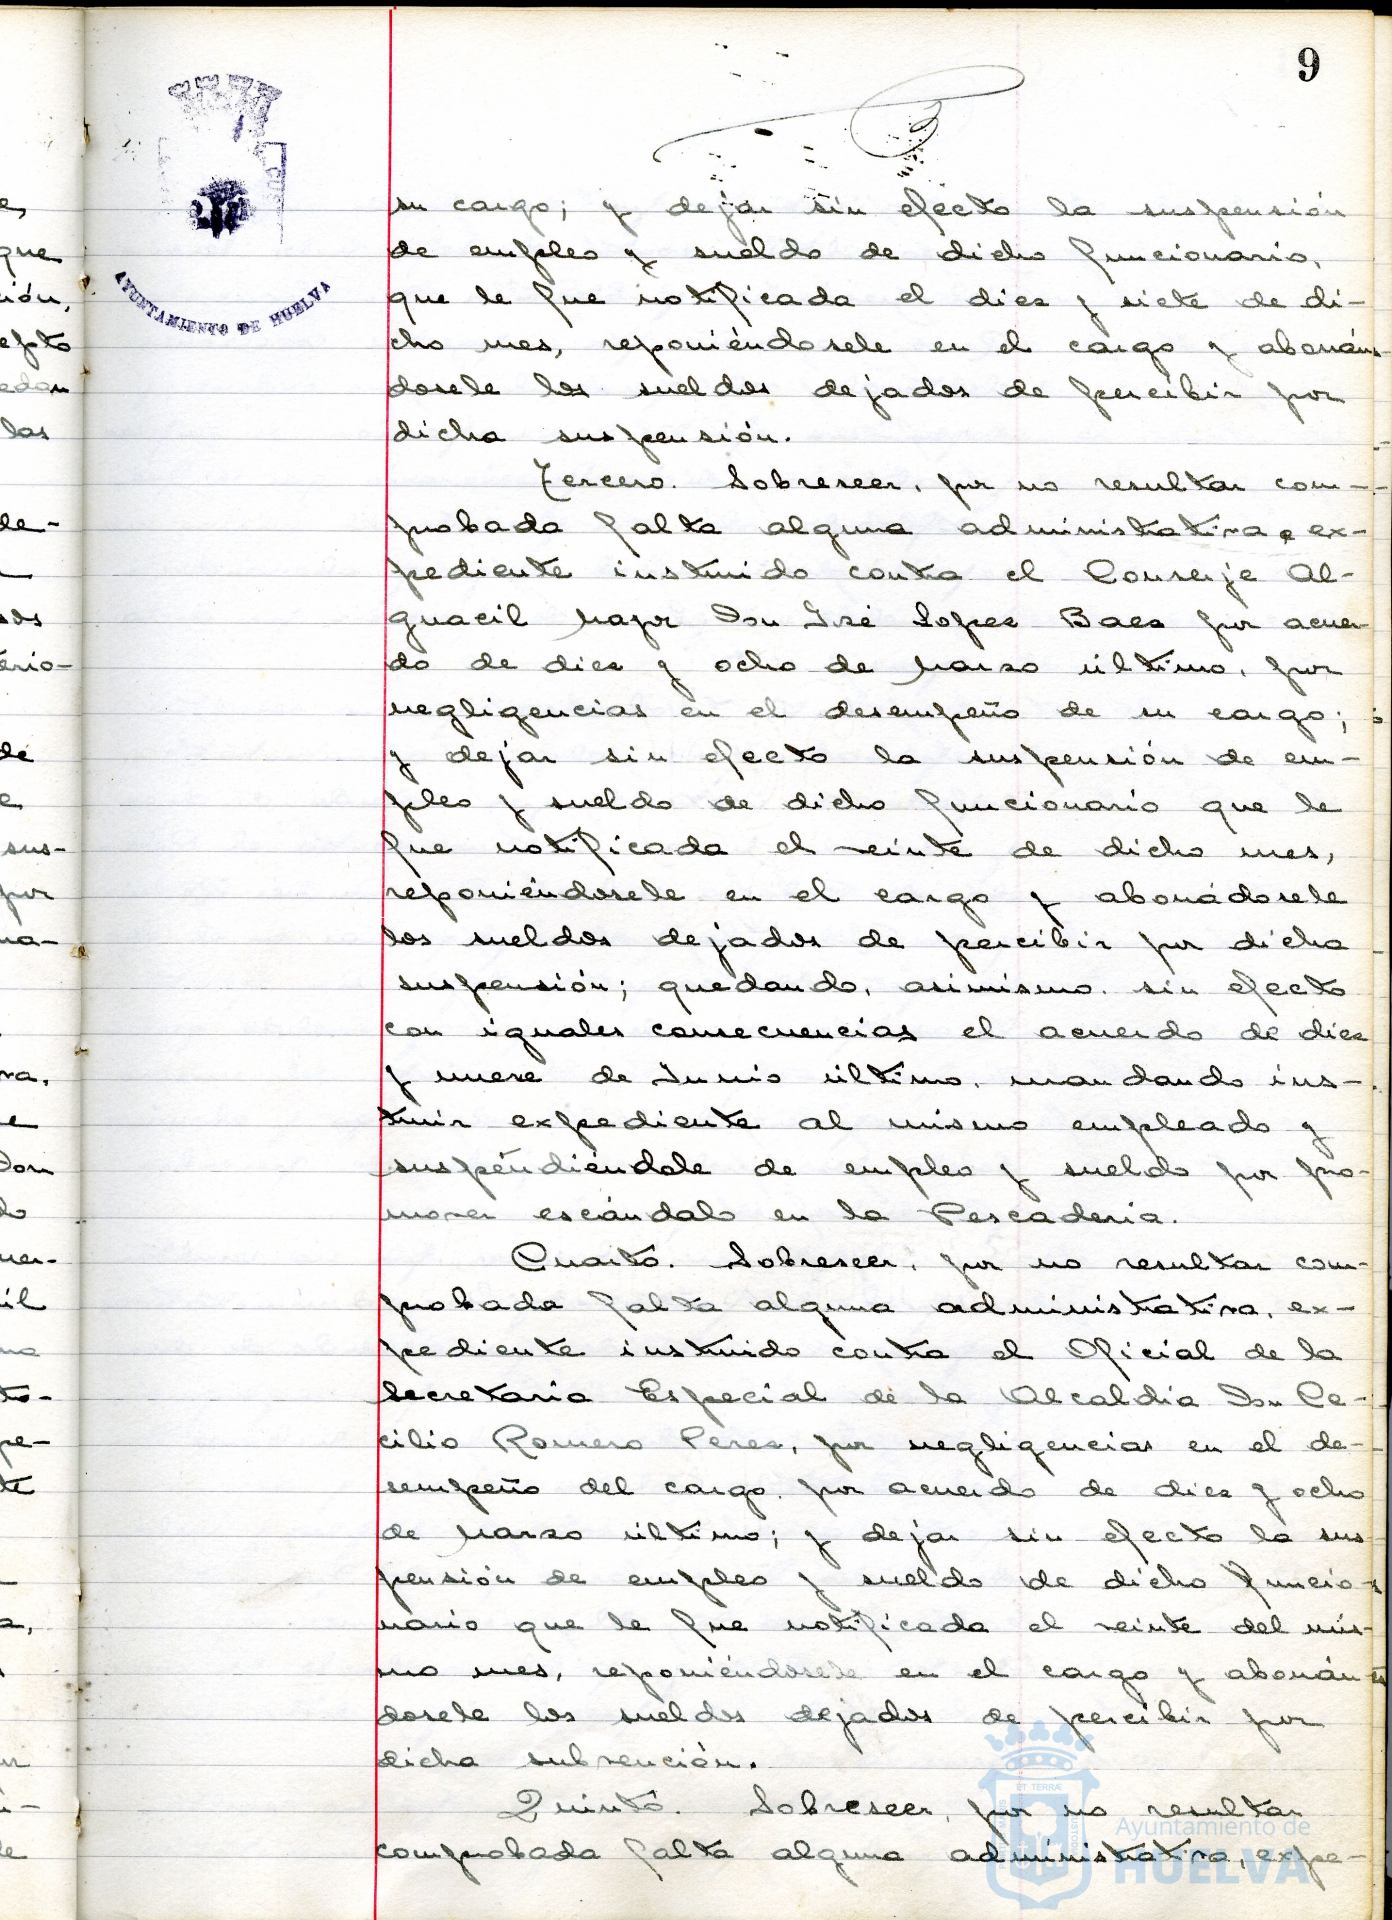 9
AYUNTAMIENTO DE HUELVA
su cargo; y dejar sin efecto la suspensión
de empleo y sueldo de dicho funcionario,
que le fue notificada el diez y siete de di-
cho mes, reponiéndosele en el cargo y abonán-
dosele los sueldos dejados de percibir por
dicha suspensión.
Tercero. Sobreseer, por no resultar com-
probada falta alguna administrativa, ex-
pediente instruido contra el Conserje Al-
guacil Mayor Don José Lopez Baez por acuer-
do de diez y ocho de Marzo último, por
negligencias en el desempeño de su cargo;
y dejar sin efecto la suspensión de em-
pleo y sueldo de dicho funcionario que le
fue notificada el veinte de dicho mes,
reponiéndosele en el cargo y abonádosele
los sueldos dejados de percibir por dicha
suspensión; quedando, asimismo, sin efecto
con iguales consecuencias el acuerdo de diez
y nueve de Junio último, mandando ins-
truir expediente al mismo empleado y
suspendiéndole de empleo y sueldo por pro-
mover escándalo en la Pescaderia.
Cuarto. Sobreseer, por no resultar com-
probada falta alguna administrativa, ex-
pediente instruido contra el Oficial de la
Secretaria Especial de la Alcaldia Don Ce-
cilio Romero Perez, por negligencias en el de-
sempeño del cargo, por acuerdo de diez y ocho
de Marzo último; y dejar sin efecto la sus-
pensión de empleo y sueldo de dicho funcio-
nario que le fue notificada el veinte del mis-
mo mes, reponiéndosele en el cargo y abonán-
dosele los sueldos dejados de percibir por
dicha subvención.
Quinto. Sobreseer, por no resultar
comprobada falta alguna administrativa, expe-
Ayuntamiento de
HUELVA